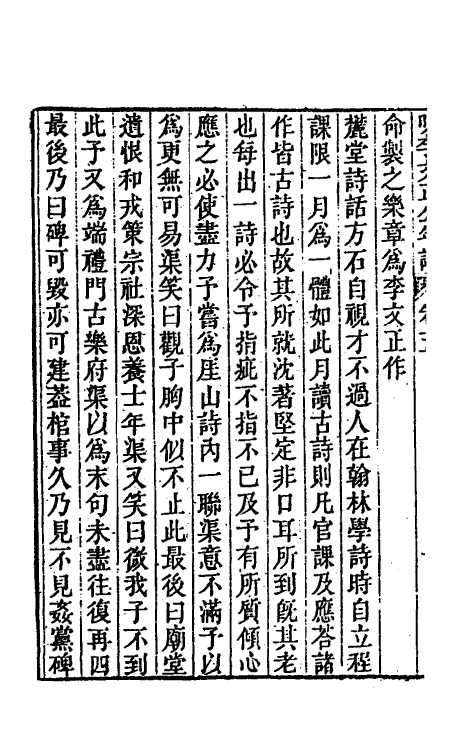 命製之樂章爲李文正作
麓堂詩話方石自視才不過人在翰林學詩時自立程
課限一月爲一體如此月讀古詩則凡官課及應荅諸
作皆古詩也故其所就沈著堅定非口耳所到旣其老
也每出一詩必令予指疵不指不已及予有所質傾心
應之必使盡力予嘗爲厓山詩內一聯渠意不滿予以
爲更無可易渠笑曰觀子胸中似不止此最後曰廟堂
遺恨和戎策宗社深恩養士年渠又笑曰微我子不到
此予又爲端禮門古樂府渠以爲末句未盡往復再四
最後乃曰碑可毀亦可建葢棺事久乃見不見姦黨碑